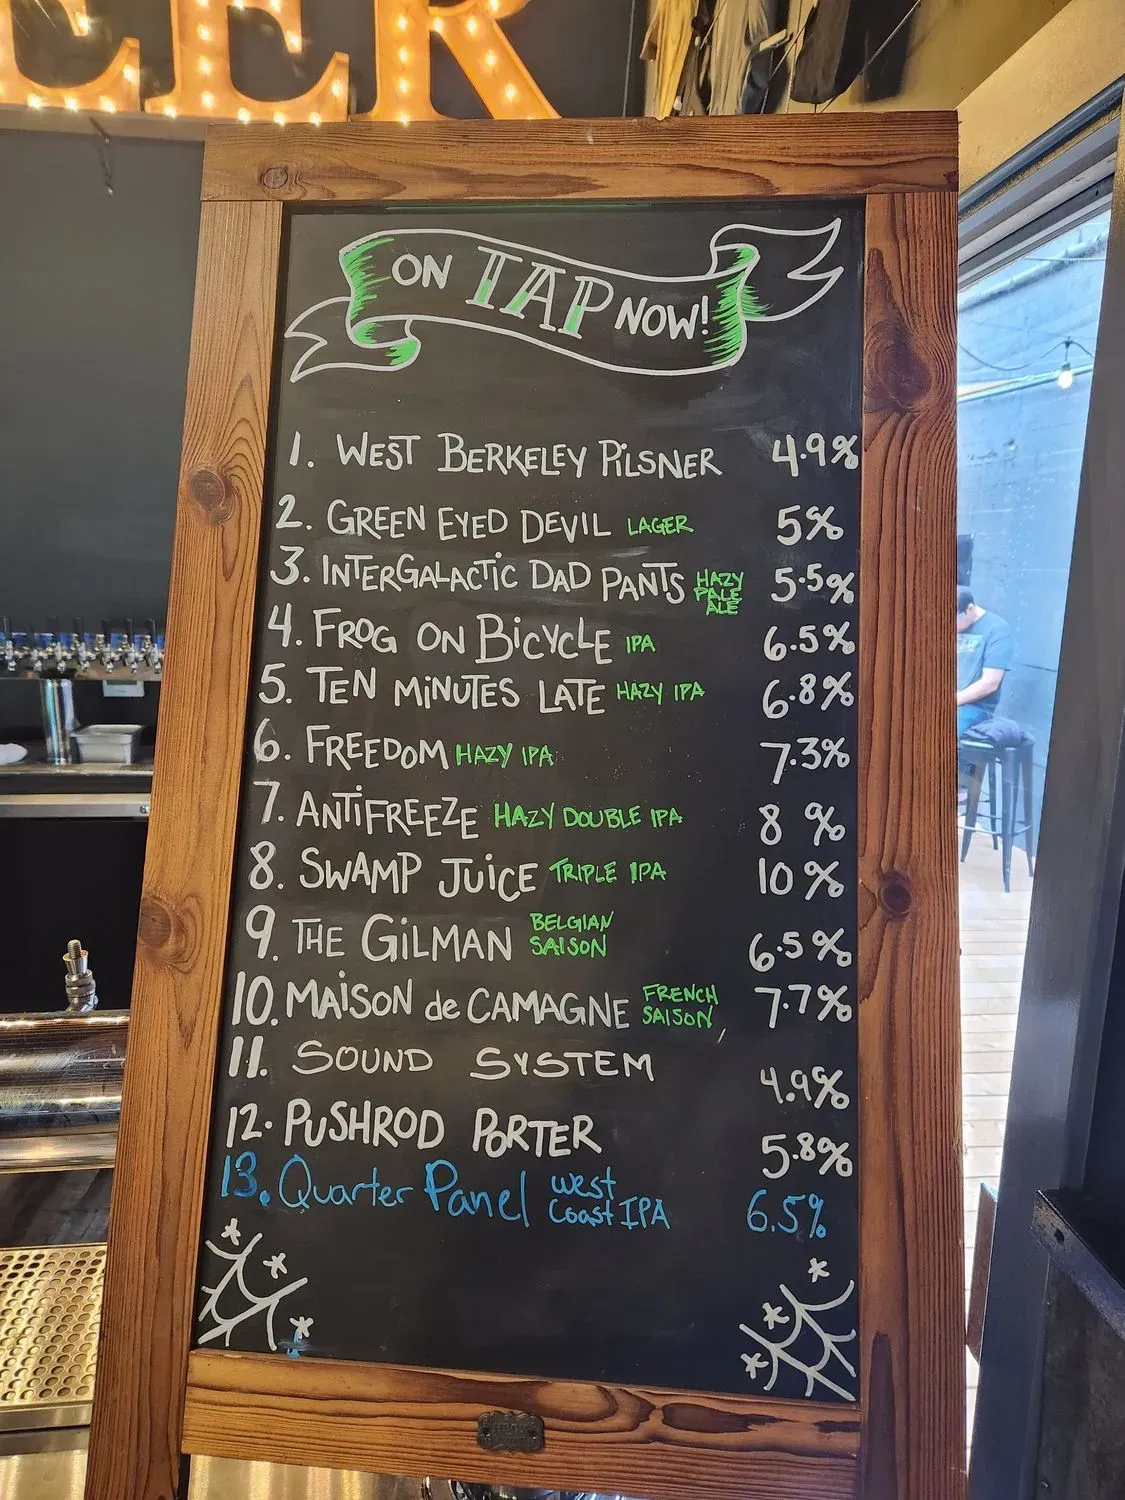 EER
ON TAP NOW!
1. WEST BERKELEY PILSNER 4.9%
2. GREEN EYED DEVIL LAGER 5%
3. INTERGALACTIC DAD PANTS HAZY PALE ALE 5.5%
4. FROG ON BICYCLE IPA 6.5%
5. TEN MINUTES LATE HAZY IPA 6.8%
6. FREEDOM HAZY IPA 7.3%
7. ANTIFREEZE HAZY DOUBLE IPA 8 %
8. SWAMP JUICE TRIPLE IPA 10 %
9. THE GILMAN BELGIAN SAISON 6.5%
10. MAISON de CAMAGNE FRENCH SAISON 7.7%
11. SOUND SYSTEM 4.9%
12. PUSHROD PORTER 5.8%
13. Quarter Panel West Coast IPA 6.5%